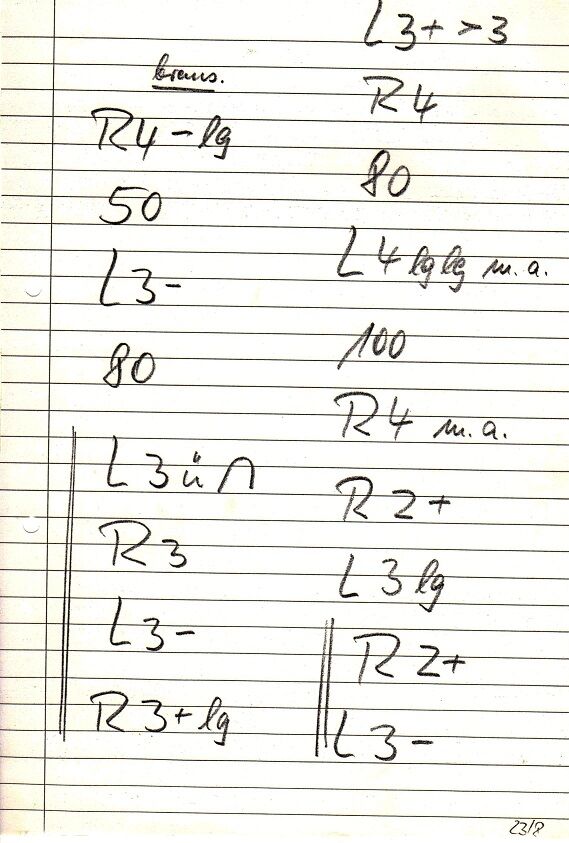 brems.
R4-lg
50
L3-
80
L3 ü ∩
R3
L3-
R3+lg
L3+ >3
R4
80
L4 lglg m.a.
100
R4 m.a.
R2+
L3 lg
R2+
L3-
23/8